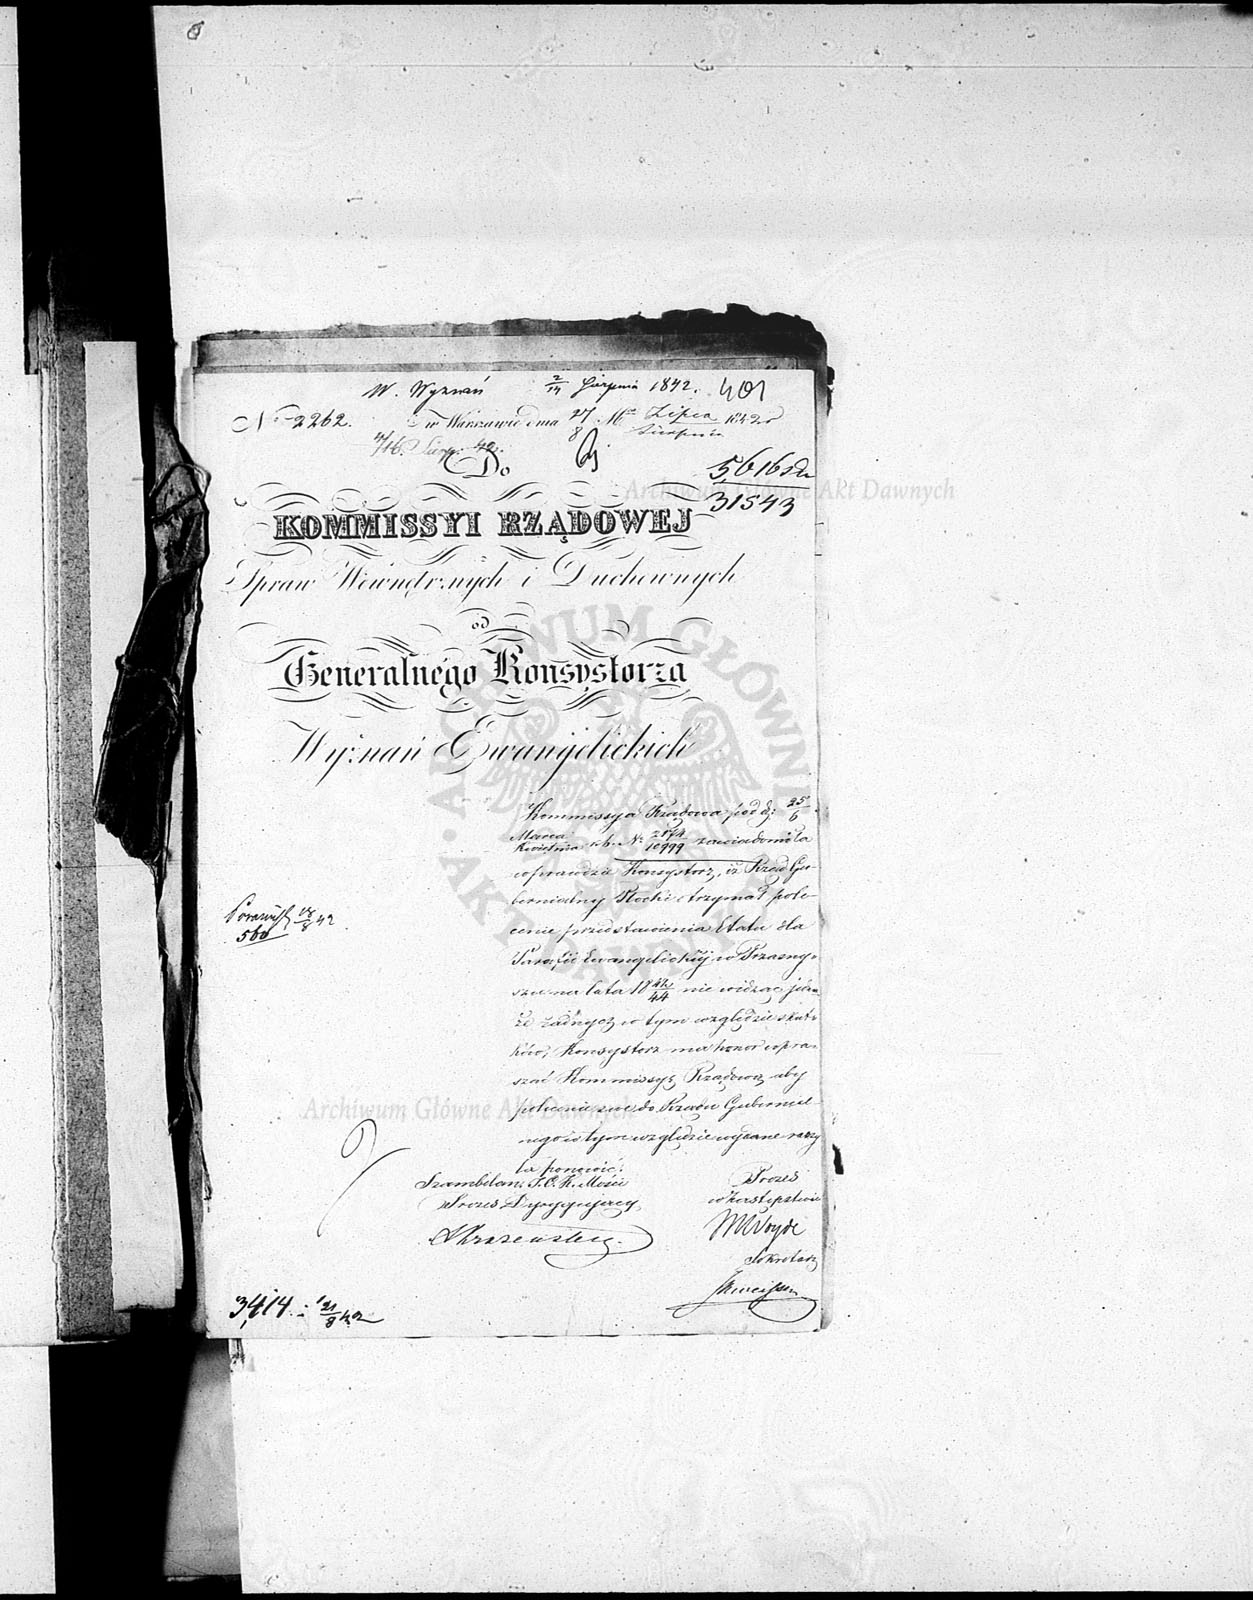 W. Wyznań 2/14 Sierpnia 1842. 401
No 2262. w Warszawie dnia 27/8 Mca Lipca/Sierpnia 1842 r
4/16 Sierp. 42.
Do
5616
31543
KOMMISSYI RZĄDOWEJ
Spraw Wewnętrznych i Duchownych
od
Generalnego Konsystorza
Wyznań Ewangelickich
Kommissya Rządowa pod d: 25/6
Marca/Kwietnia r. b. No 2874/10999 zawiadomiła
wprawdzie Konsystorz, iż Rząd Gu-
bernialny Płocki otrzymał pole-
cenie przedstawienia Etatu dla
Parafii Ewangelickiej w Przasny-
szu na lata 18 42/44 nie widząc jedna
że żadnych w tym względzie skut-
ków, Konsystorz ma honor upra-
szać Kommissyę Rządową aby
polecenie swe do Rządu Gubernial-
nego w tym względzie wydane raczy-
ła ponowić.
560 18/8 42
Szambelan J. C. K. Mości
Prezes Dyrygujący
Prezes
w Zastępstwie
Sekretarz
3414 21/8 42
Archiwum Główne Akt Dawnych
ARCHIWUM GŁÓWNE
AKT DAWNYCH
Archiwum Główne Akt Dawnych